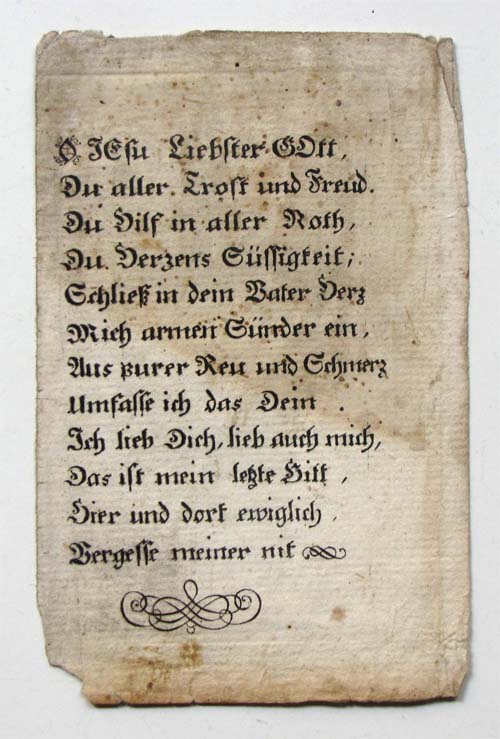 O JEsu Liebster GOtt,
Du aller Trost und Freud.
Du Hilf in aller Noth,
Du Herzens Süssigkeit;
Schließ in dein Vater Herz
Mich armen Sünder ein,
Aus purer Reu und Schmerz
Umfasse ich das Dein.
Ich lieb Dich, lieb auch mich,
Das ist mein letzte Bitt,
Hier und dort ewiglich,
Vergesse meiner nit